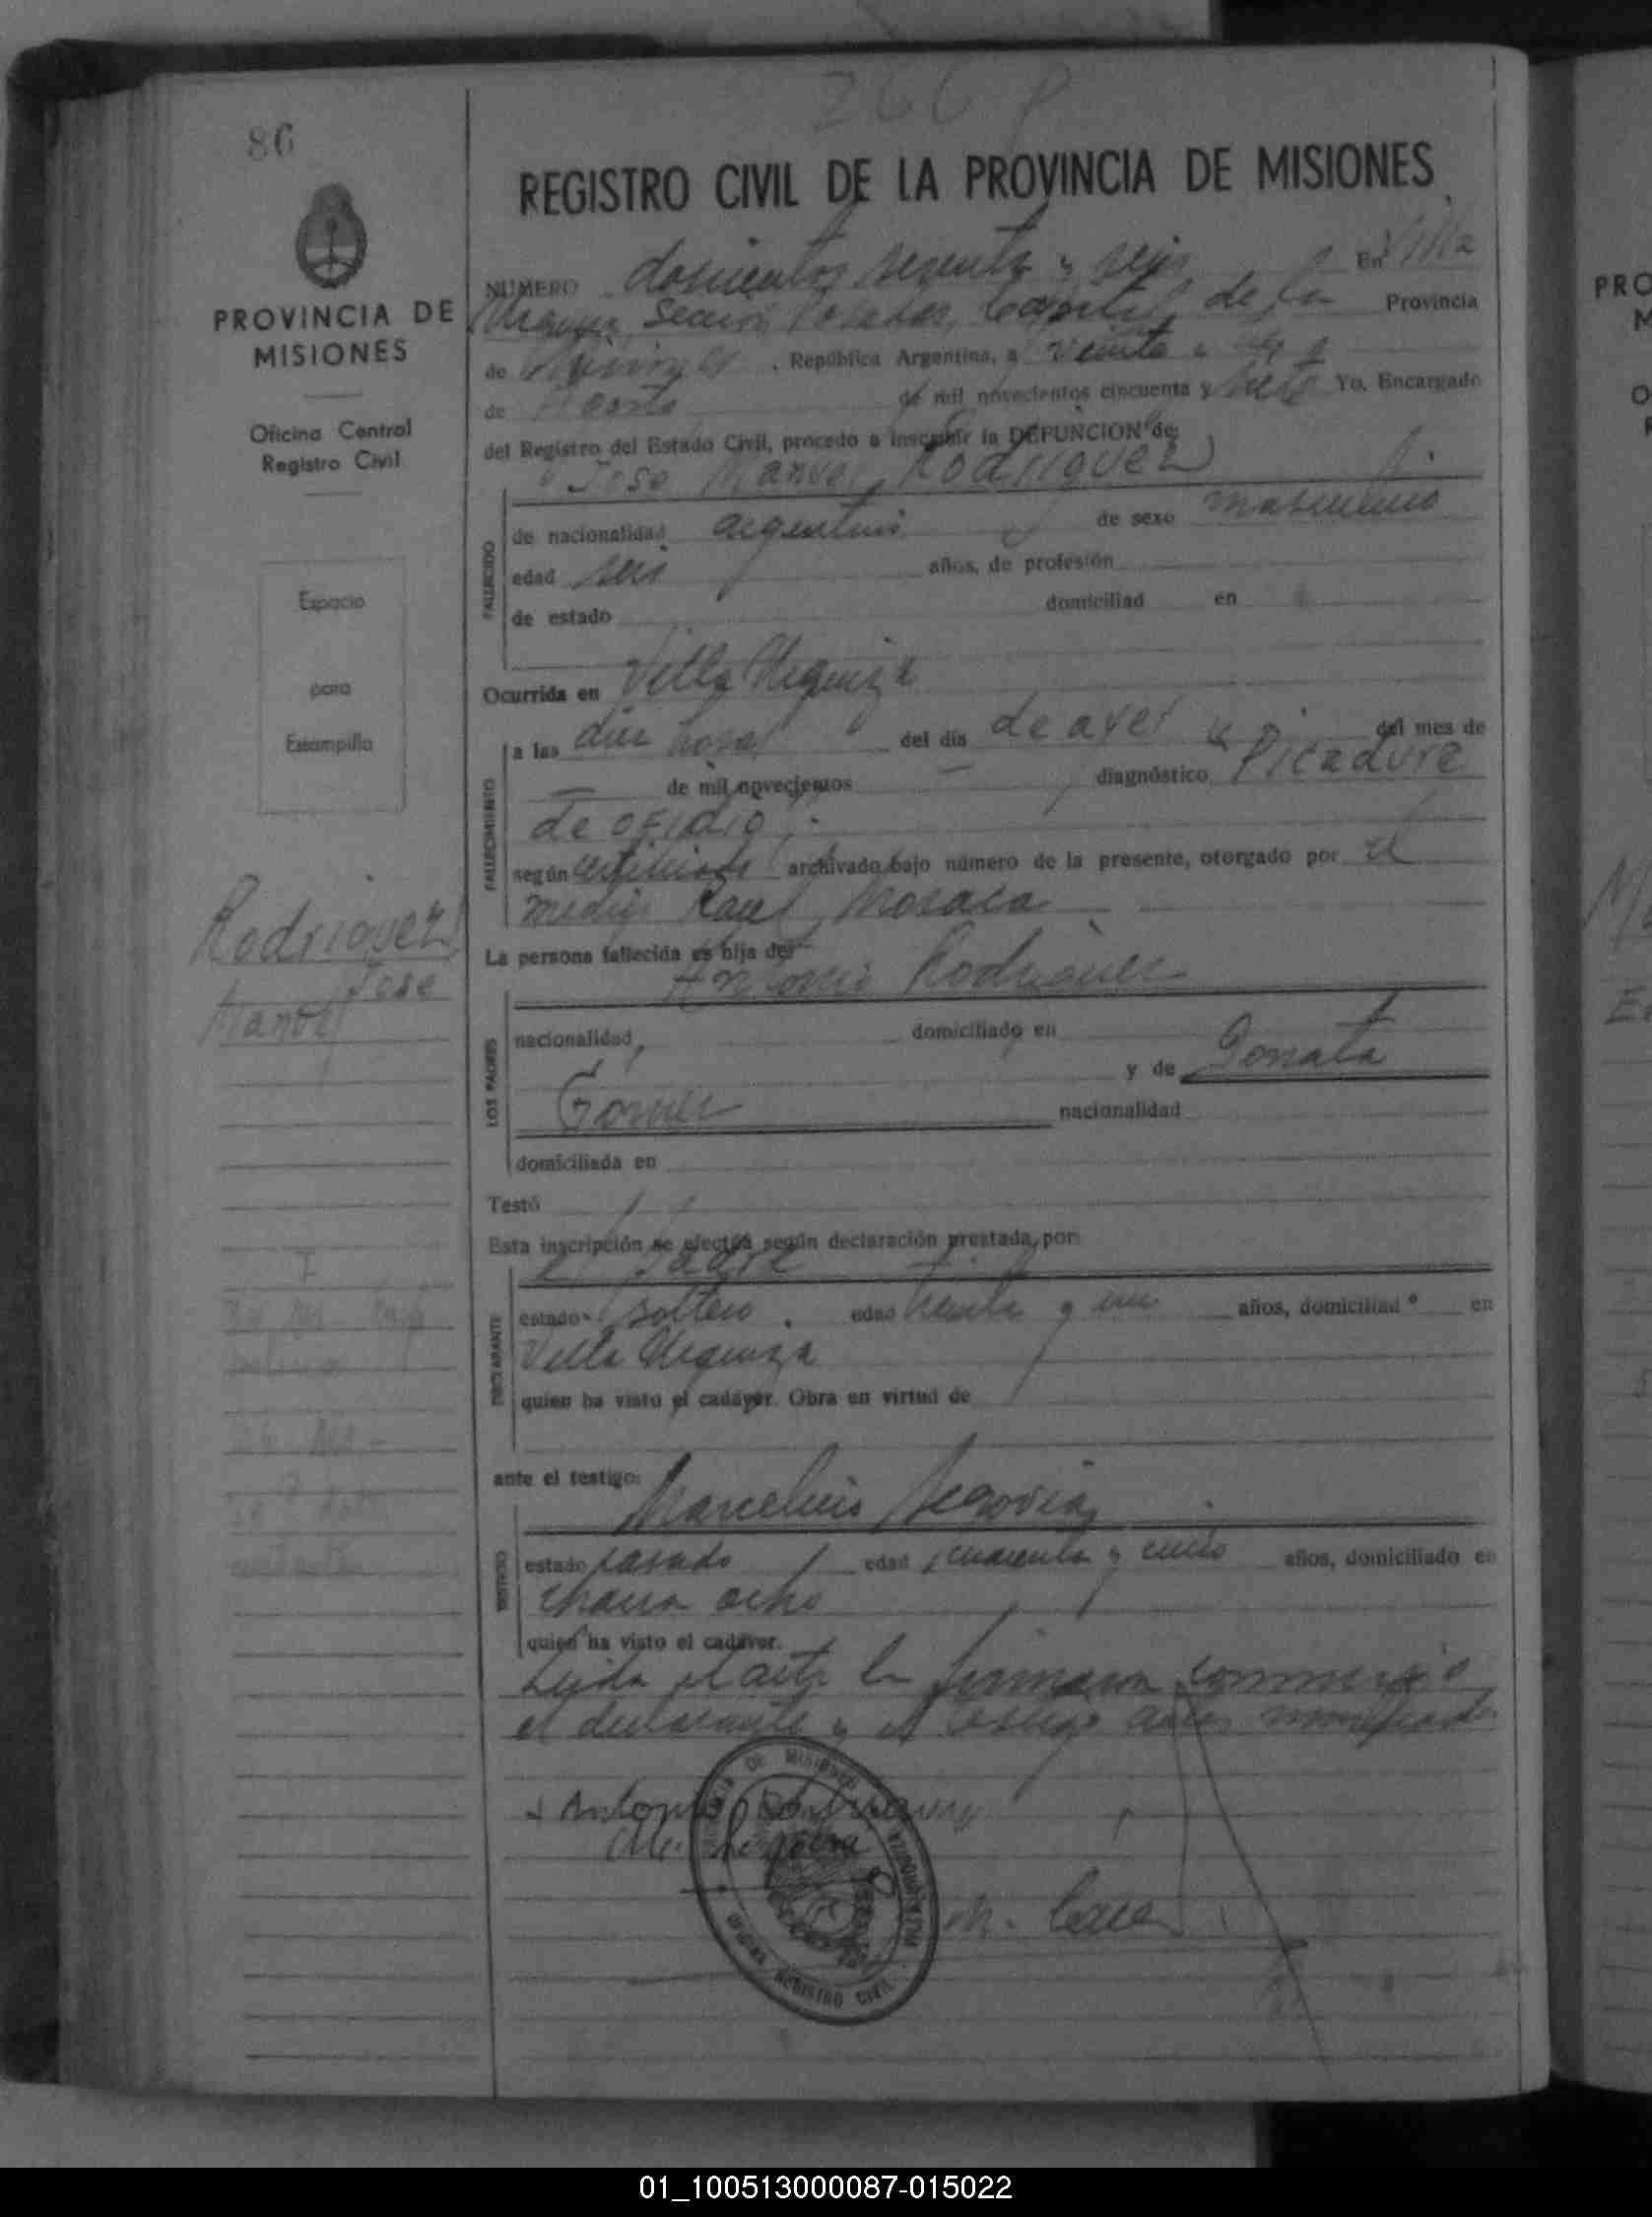 266 P
86
REGISTRO CIVIL DE LA PROVINCIA DE MISIONES
PROVINCIA DE
MISIONES
Oficina Central
Registro Civil
Espacio
para
Estampilla
Rodriguez
Jose
Manuel
NUMERO doscientos sesenta y seis En Villa
Urquiza Sección Posadas, Capital de la Provincia
de Misiones, República Argentina, a veinte y
de Agosto de mil novecientos cincuenta y siete Yo, Encargado
del Registro del Estado Civil, procedo a inscribir la DEFUNCION de:
Jose Manuel Rodriguez
FALLECIDO
de nacionalidad argentino de sexo masculino
edad seis años, de profesión
de estado domiciliad en
Ocurrida en Villa Urquiza
FALLECIMIENTO
a las diez horas del día de ayer del mes de
de mil novecientos diagnóstico Picadura
de ofidio
según certificado archivado bajo número de la presente, otorgado por el
medico Raul
La persona fallecida es hija de:
Antonio Rodriguez
LOS PADRES
nacionalidad domiciliado en
y de
Gomez nacionalidad
domiciliada en
Testó
Esta inscripción se efectúa según declaración prestada por:
el padre
DECLARANTE
estado soltero edad treinta y un años, domiciliad o en
Villa Urquiza
quien ha visto el cadáver. Obra en virtud de
ante el testigo:
Marcelino Segovia
TESTIGO
estado casado edad cuarenta y cinco años, domiciliado en
chacra ocho
quien ha visto el cadáver.
Leida el acta la firmaron conmigo
el declarante y el testigo antes
Antonio Rodriguez
M. Segovia
OFICINA REGISTRO CIVIL
01_100513000087-015022